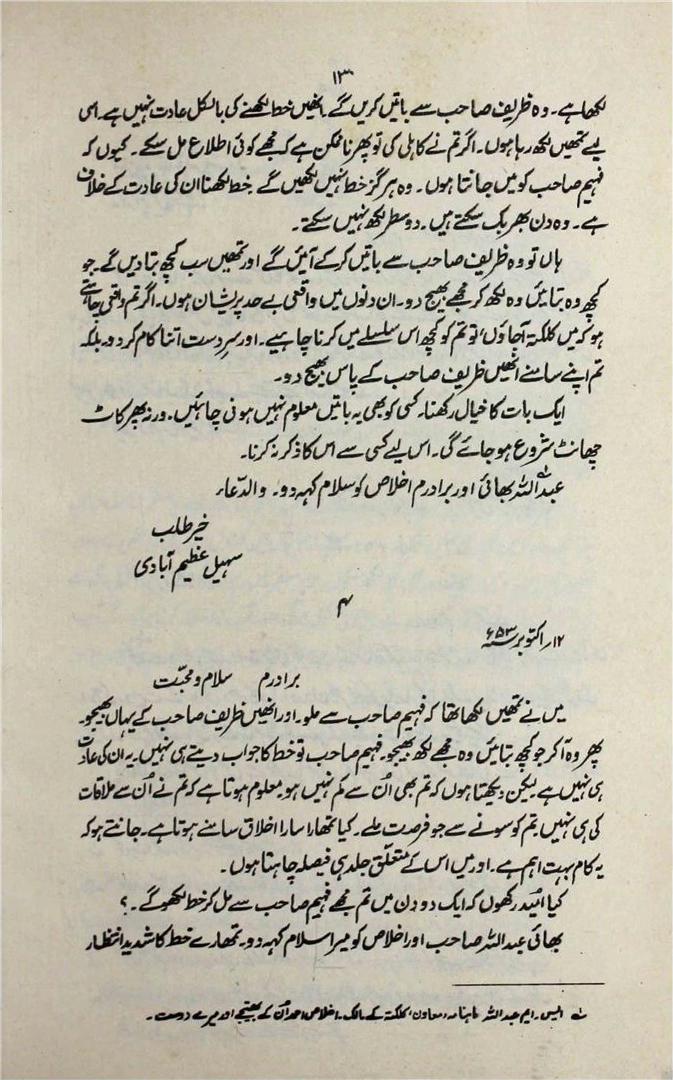 ۱۳
لکھا ہے۔ وہ ظریف صاحب سے باتیں کریں گے۔ انھیں خط لکھنے کی بالکل عادت نہیں ہے۔ اسی
لیے تمھیں لکھ رہا ہوں۔ اگر تم نے کاہلی کی تو پھر ناممکن ہے کہ مجھے کوئی اطلاع مل سکے۔ کیوں کہ
فہیم صاحب کو میں جانتا ہوں۔ وہ ہرگز خط نہیں لکھیں گے۔ خط لکھنا ان کی عادت کے خلاف
ہے۔ وہ دن بھر بک سکتے ہیں۔ دو سطر لکھ نہیں سکتے۔
ہاں تو وہ ظریف صاحب سے باتیں کر کے آئیں گے اور تمھیں سب کچھ بتا دیں گے۔ جو
کچھ وہ بتائیں وہ لکھ کر مجھے بھیج دو۔ ان دنوں میں واقعی بے حد پریشان ہوں۔ اگر تم واقعی چاہتے
ہو کہ میں کلکتہ آجاؤں، تو تم کو کچھ اس سلسلے میں کرنا چاہیے۔ اور سرِ دست اتنا کام کر دو، بلکہ
تم اپنے سامنے انھیں ظریف صاحب کے پاس بھیج دو۔
ایک بات کا خیال رکھنا۔ کسی کو بھی یہ باتیں معلوم نہیں ہونی چاہئیں۔ ورنہ پھر کاٹ
چھانٹ شروع ہو جائے گی۔ اس لیے کسی سے اس کا ذکر نہ کرنا۔
عبداللہ بھائی اور برادرم اخلاص کو سلام کہہ دو۔ والدّعاء
خیر طلب
سہیل عظیم آبادی
۴
۱۲؍ اکتوبر ۵۳ء
برادرم سلام و محبّت
میں نے تمھیں لکھا تھا کہ فہیم صاحب سے ملو۔ اور انھیں ظریف صاحب کے یہاں بھیجو۔
پھر وہ آکر جو کچھ بتائیں وہ مجھے لکھ بھیجو۔ فہیم صاحب تو خط کا جواب دیتے ہی نہیں۔ یہ ان کی عادت
ہی نہیں ہے۔ لیکن دیکھتا ہوں کہ تم بھی اُن سے کم نہیں ہو۔ معلوم ہوتا ہے کہ تم نے اُن سے ملاقات
کی ہی نہیں۔ تم کو سونے سے جو فرصت ملے۔ کیا تمھارا سارا اخلاق سامنے ہوتا ہے۔ جانتے ہو کہ
یہ کام بہت اہم ہے۔ اور میں اس کے متعلّق جلد ہی فیصلہ چاہتا ہوں۔
کیا امّید رکھوں کہ ایک دو دن میں تم مجھے فہیم صاحب سے مل کر خط لکھو گے۔؟
بھائی عبداللہ صاحب اور اخلاص کو میرا سلام کہہ دو۔ تمھارے خط کا شدید انتظار
ایس۔ ایم عبداللہ ماہنامہ ’معاون‘ کلکتہ کے مالک۔ اخلاص احمد اُن کے بھتیجے اور میرے دوست۔